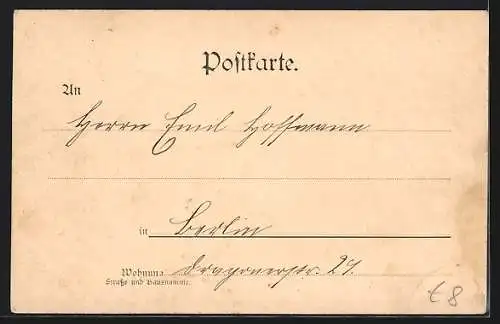 Postkarte.
An
Herrn Emil Hoffmann
in Berlin
Wohnung Dragonerstr. 29.
Straße und Hausnummer.
€8